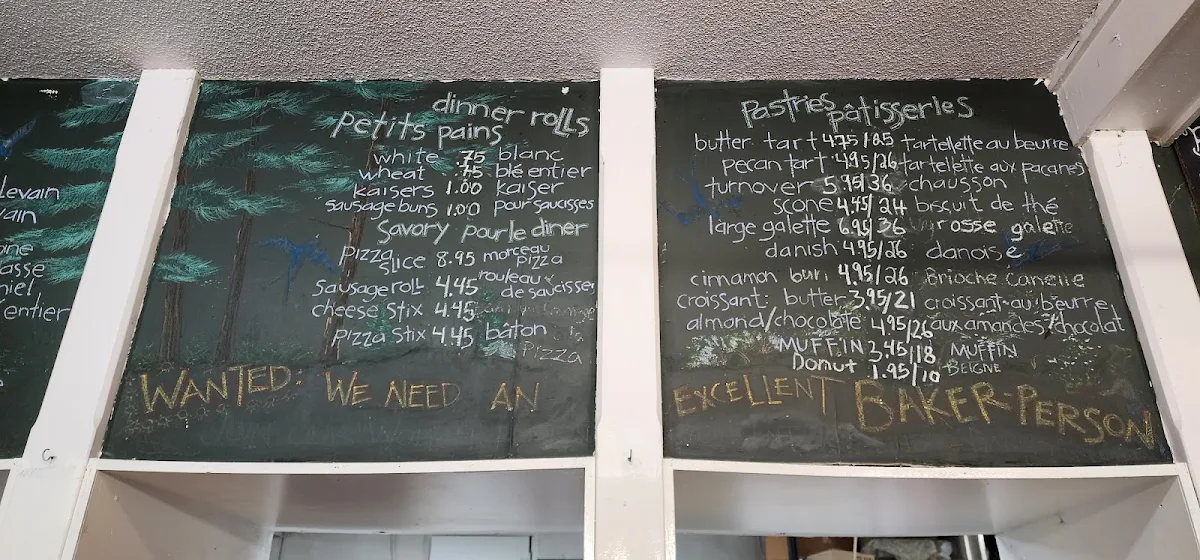 levain
vain
asse
niel
entier
dinner rolls
petits pains
white .75 blanc
wheat .75 blé entier
kaisers 1.00 kaiser
sausage buns 1.00 pour saucisses
Savory pour le diner
pizza slice 8.95 morceau pizza
Sausage roll 4.45 rouleaux de saucisses
cheese stix 4.45
pizza stix 4.45 bâton pizza
WANTED: WE NEED AN
Pastries pâtisseries
butter tart 4.75/25 tartellette au beurre
pecan tart 4.95/26 tartelette aux pacanes
turnover 5.95/36 chausson
scone 4.45/24 biscuit de thé
large galette 6.95/36 grosse galette
danish 4.95/26 danoise
cinnamon bun 4.95/26 Brioche Canelle
croissant: butter 3.95/21 croissant-au-beurre
almond/chocolate 4.95/26 aux amandes/chocolat
MUFFIN 3.45/18 MUFFIN
Donut 1.95/10 BEIGNE
EXCELLENT BAKER-PERSON